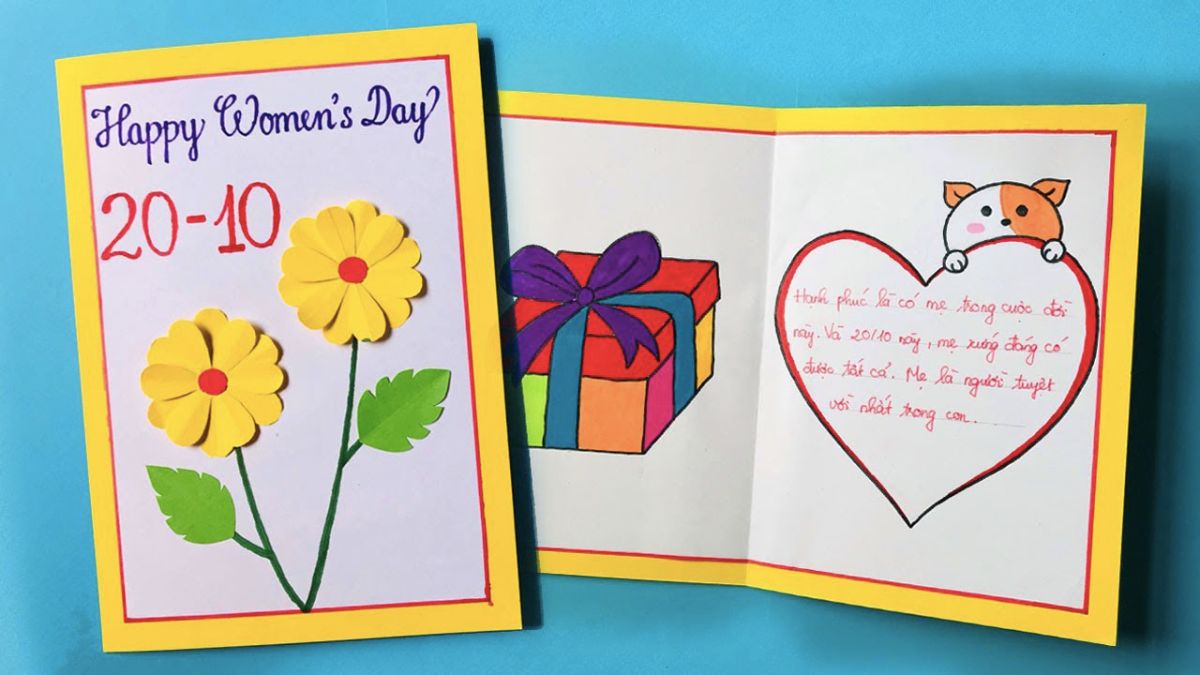 Happy Women's Day
20-10
Hạnh phúc là có mẹ trong cuộc đời
này. Và 20/10 này, mẹ xứng đáng có
được tất cả. Mẹ là người tuyệt
vời nhất trong con.